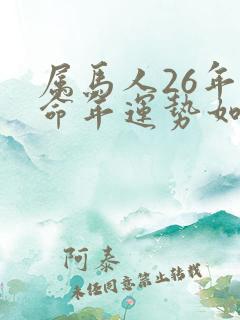 属馬人26年
命年運勢如
阿泰
未经同意禁止转载